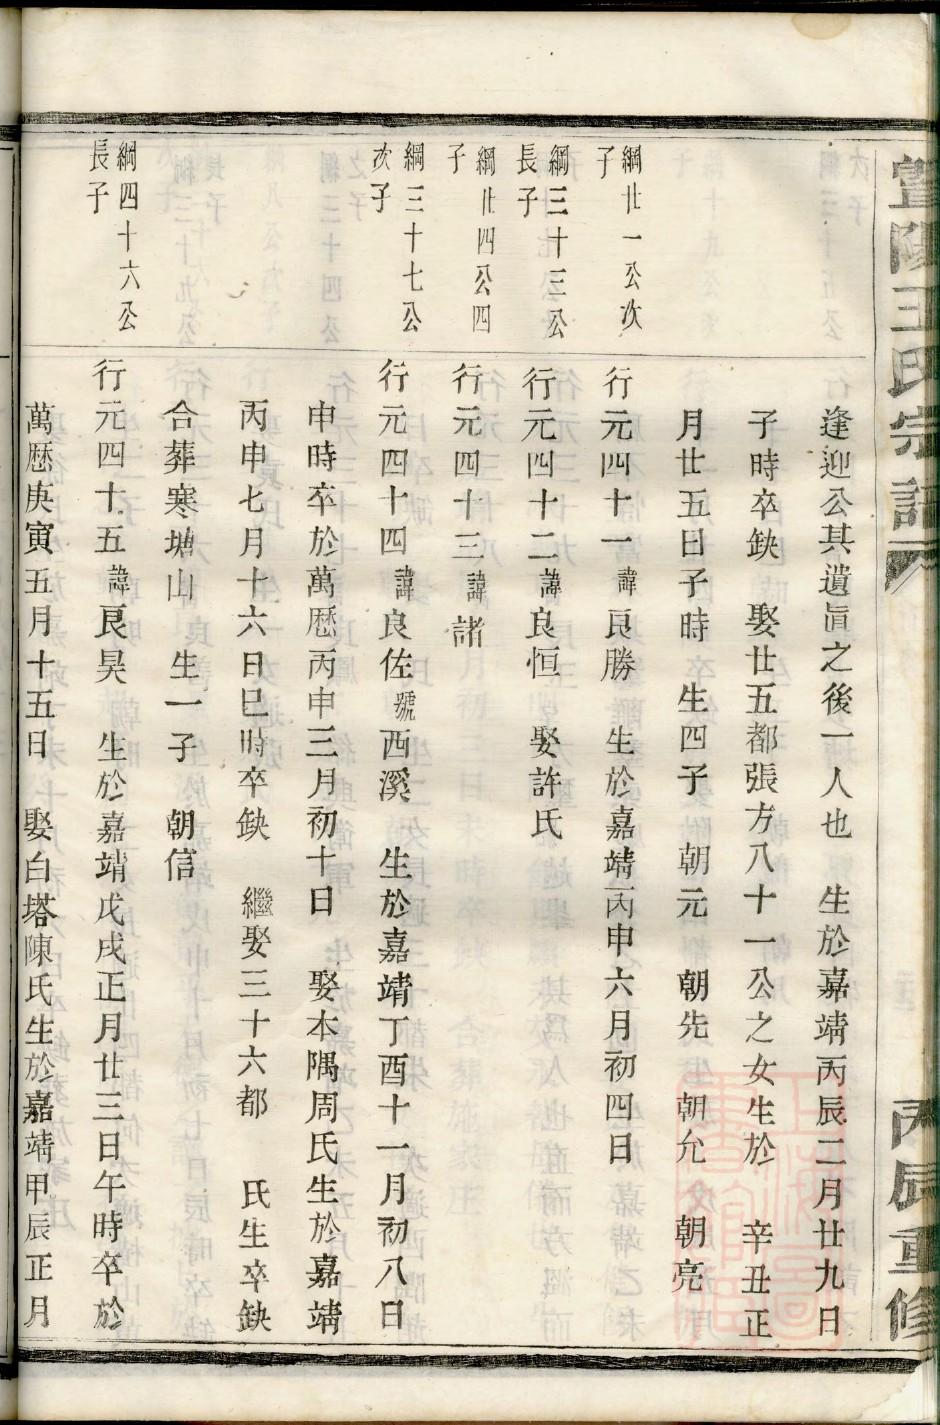 暨陽王氏宗譜
丙辰重修
逢迎公其遺眞之後一人也　生於嘉靖丙辰二月廿九日
子時卒缺　娶廿五都張方八十一公之女生於　辛丑正
月廿五日子時　生四子　朝元　朝先　朝允　朝亮
綱廿一公次
子
行元四十一諱良勝　生於嘉靖丙申六月初四日
綱三十三公
長子
行元四十二諱良恒　娶許氏
綱廿四公四
子
行元四十三諱諸
綱三十七公
次子
行元四十四諱良佐號西溪　生於嘉靖丁酉十一月初八日
申時卒於萬厯丙申三月初十日　娶本隅周氏生於嘉靖
丙申七月十六日巳時卒缺　繼娶三十六都　氏生卒缺
合葬寒塘山　生一子　朝信
綱四十六公
長子
行元四十五諱良昊　生於嘉靖戊戌正月廿三日午時卒於
萬厯庚寅五月十五日　娶白塔陳氏生於嘉靖甲辰正月